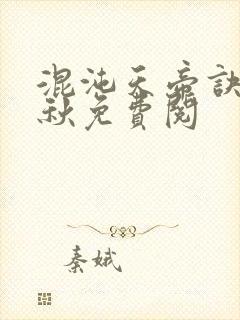 混沌天帝訣
秋免費閱
秦娥